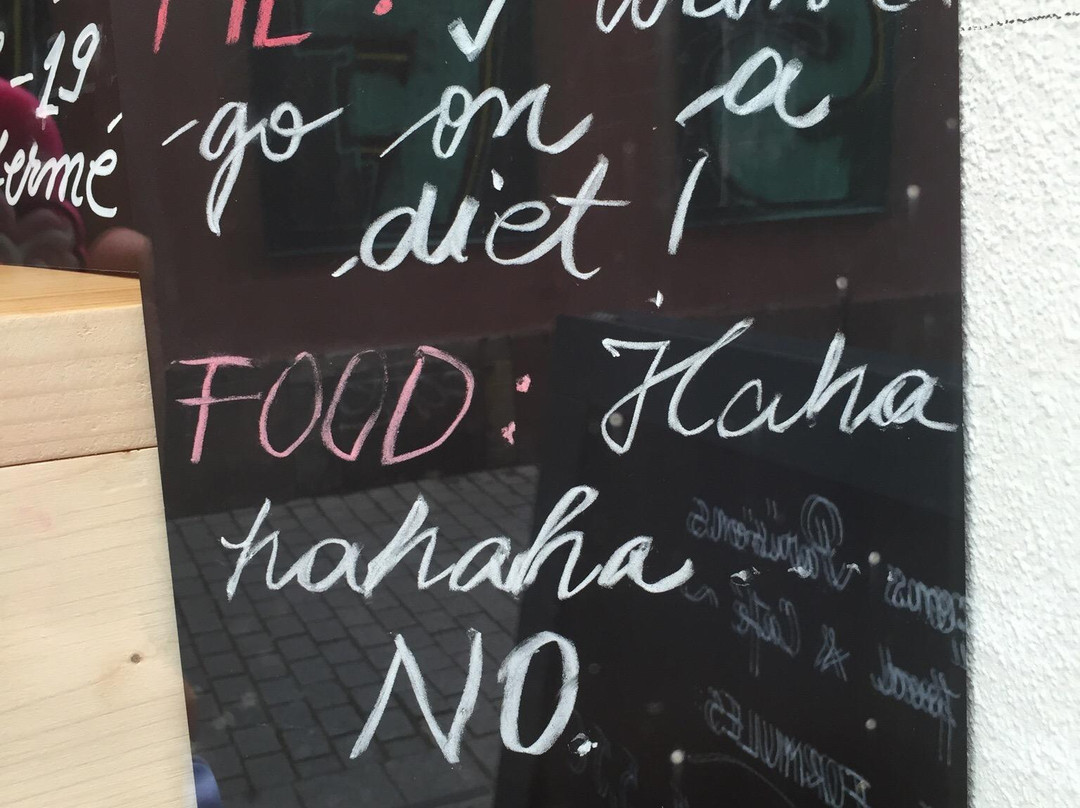 ME : I wanna
-19
go on a
fermé
diet !
FOOD : Haha
hahaha.
NO.
FORMULES